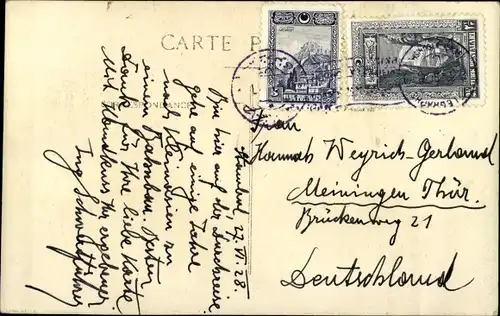 CARTE P
CORRESPONDANCE
Stambul, 27. VI. 28.
Bin hier auf der Durchreise
gehe auf einige Jahre
nach Kleinasien zu
einem Bahnbau. Besten
Dank für Ihre liebe Karte
Mit Handkuss Ihr ergebener
Ing.
Frau
Hannah Weyrich-Gerland
Meiningen Thür.
Brückenweg 21
Deutschland